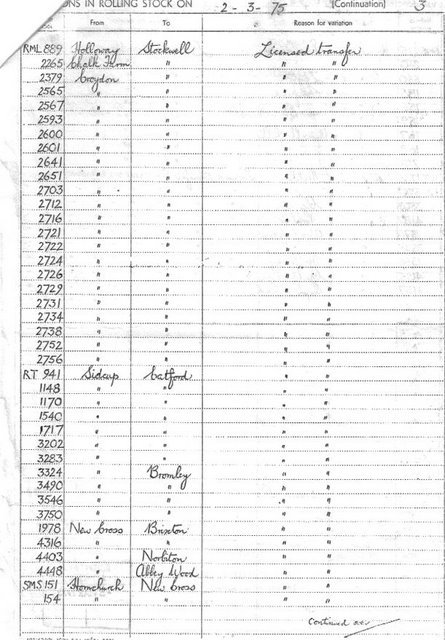 ONS IN ROLLING STOCK ON 2-3-75 (Continuation) 3
From To Reason for variation
RML 889 Holloway Stockwell Licensed transfer
2265 Chalk Farm " " "
2379 Croydon " " "
2565 " " " "
2567 " " " "
2593 " " " "
2600 " " " "
2601 " " " "
2641 " " " "
2651 " " " "
2703 " " " "
2712 " " " "
2716 " " " "
2721 " " " "
2722 " " " "
2724 " " " "
2726 " " " "
2729 " " " "
2731 " " " "
2734 " " " "
2738 " " " "
2752 " " " "
2756 " " " "
RT 941 Sidcup Catford " "
1148 " " " "
1170 " " " "
1540 " " " "
1717 " " " "
3202 " " " "
3283 " " " "
3324 " Bromley " "
3490 " " " "
3546 " " " "
3750 " " " "
1978 New Cross Brixton " "
4316 " " " "
4403 " Norbiton " "
4448 " Abbey Wood " "
SMS 151 Hornchurch New Cross " "
154 " " " "
Continued over